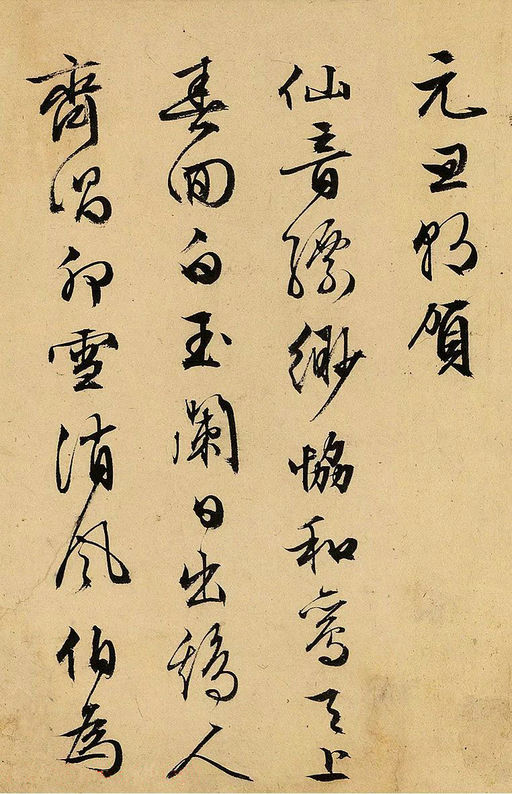 元旦朝賀
仙音縹緲恊和鸞天上
春回白玉闌日出鷄人
齊唱卯雪消風伯為